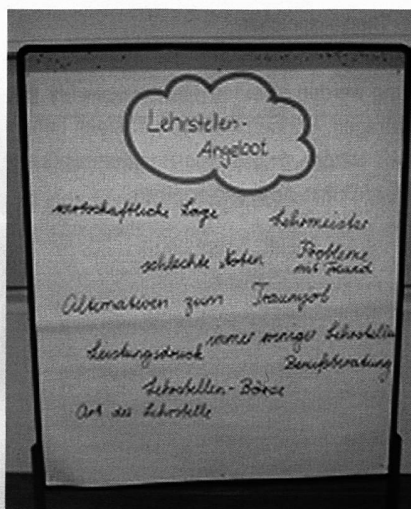 Lehrstelen-
Angebot
wirtschaftliche Lage
Lehrmeister
schlechte Noten
Probleme
mit
Alternativen zum Traumjob
immer weniger Lehrstellen
Leistungsdruck
Berufsberatung
Lehrstellen-Börse
Art der Lehrstelle